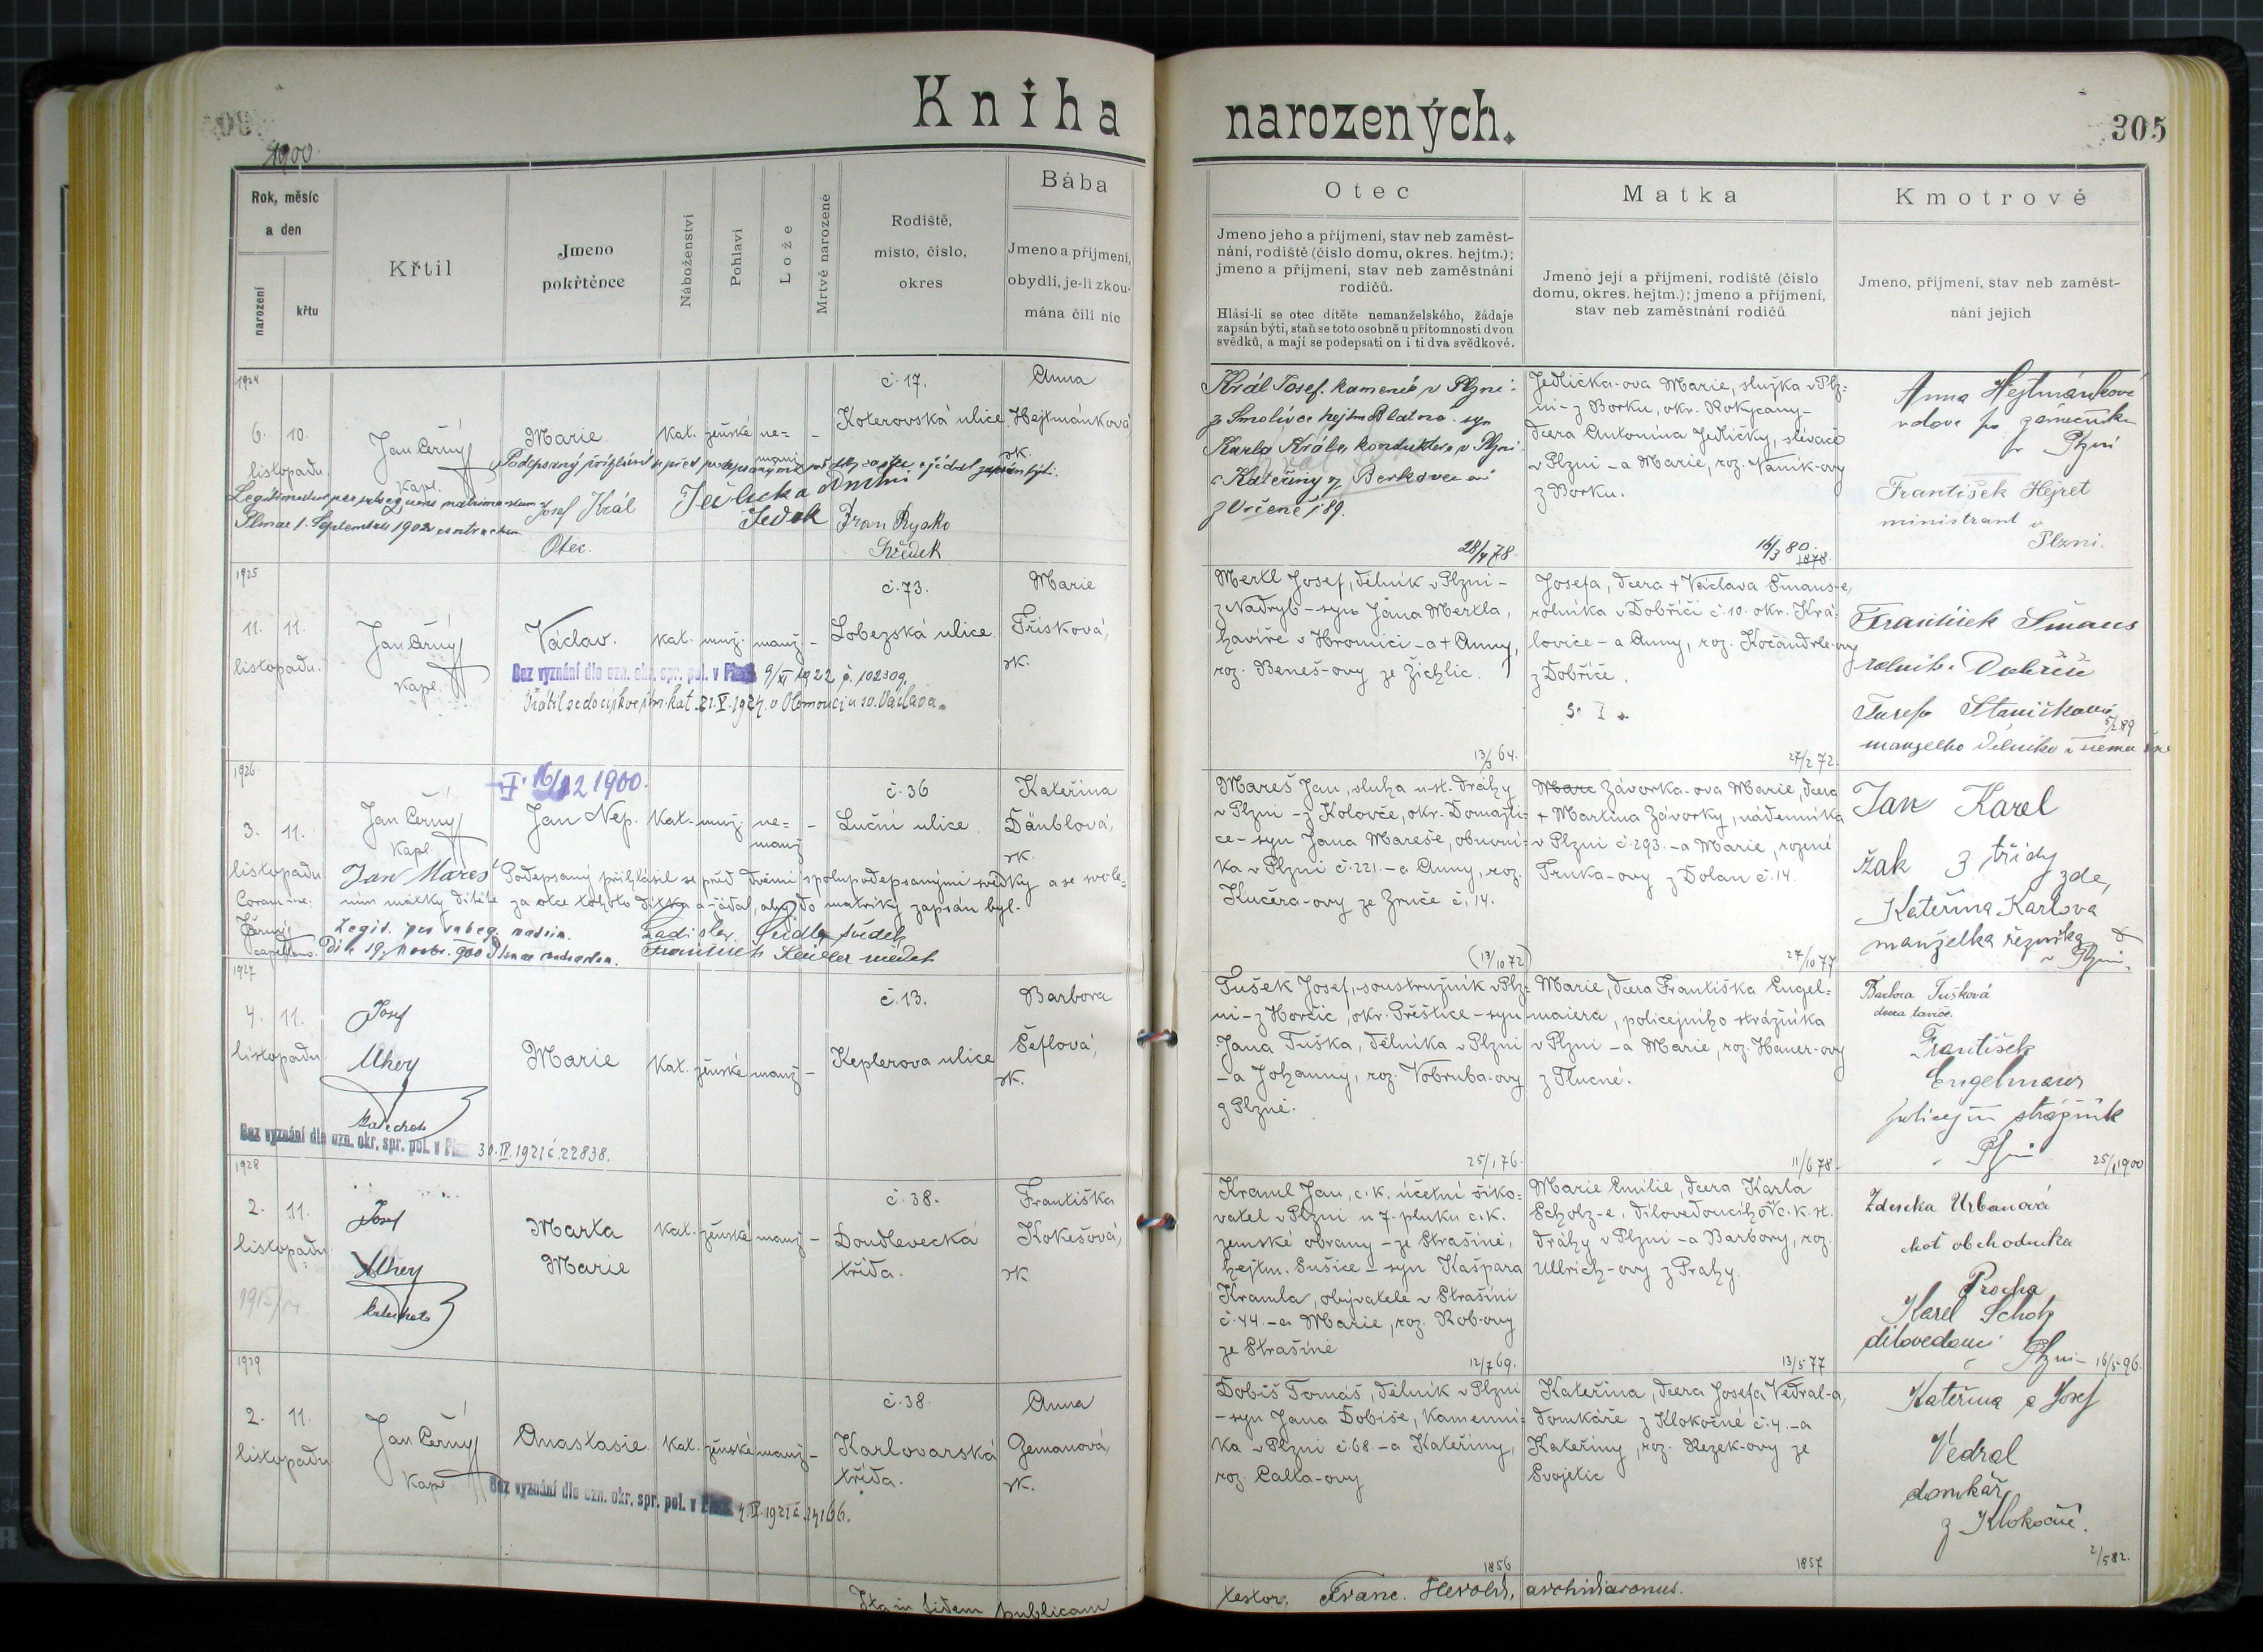 Kniha
narozených.
305
1900
Rok, měsíc
a den
narození
křtu
Křtil
Jmeno
pokřtěnce
Náboženství
Pohlaví
Lože
Mrtvě narozené
Rodiště,
místo, číslo,
okres
Bába
Jmeno a příjmení,
obydlí, je-li zkou-
mána čili nic
Otec
Jmeno jeho a příjmení, stav neb zaměst-
nání, rodiště (číslo domu, okres. hejtm.);
jmeno a příjmení, stav neb zaměstnání
rodičů.
Hlásí-li se otec dítěte nemanželského, žádaje
zapsán býti, staň se toto osobně u přítomnosti dvou
svědků, a mají se podepsati on i ti dva svědkové.
Matka
Jmeno její a příjmení, rodiště (číslo
domu, okres. hejtm.); jmeno a příjmení,
stav neb zaměstnání rodičů
Kmotrové
Jmeno, příjmení, stav neb zaměst-
nání jejich
1924
6. 10.
listopadu
Jan Černý
kapl.
Marie
kat. ženské ne=
manž
–
č. 17.
Koterovská ulice
Anna
Hejtmánková,
zk.
Podepsaný přihlásil se před podepsanými
zapsán býti.
Legitimatus per subsequens matrimonium
Plznae 1. Septembris 1902 contractum
Josef Král
Otec.
Svědek
Král Josef, kameník v Plzni:
z Smolivce hejtm Blatná - syn
Karla Krále, konduktera v Plzni
a Kateřiny
28/4 78
Jedlička-ova Marie, služka v Plz=
ni - z Borku, okr. Rokycany -
dcera Antonína Jedličky, slévače
v Plzni - a Marie, roz. Vaník-ovy
z Borku.
16/3 80.
1878.
Anna Hejtmánková
vdova po zámečníku
v Plzni
František Hejret
ministrant v
Plzni.
1925
11. 11.
listopadu.
Jan Černý
kapl.
Václav.
kat. muž. manž –
Bez vyznání dle ozn. okr. spr. pol. v Plzni 9/XI 1922 č. 102309.
Vrátil se do církve řím. kat. 21.V.1924. v Olomouci u sv. Václava.
č. 73.
Lobezská ulice
Marie
Třísková,
zk.
Mertl Josef, dělník v Plzni -
z Nadryb - syn Jana Mertla,
havíře v Hromici - a + Anny,
roz. Beneš-ovy ze Žichlic.
13/3 64.
Josefa, dcera + Václava Šmaus-e,
rolníka v Dobříči č. 10. okr. Kra=
lovice - a Anny, roz. Kočandrle-ovy
z Dobříče.
27/2 72
František Šmaus
rolník. Dobříč
1926
16/12 1900.
3. 11.
listopadu
Jan Černý
kapl.
Jan Nep.
kat. muž. ne=
manž
–
č. 36
Luční ulice
Kateřina
Däublová,
zk.
Jan Mareš
Podepsaný přihlásil se před dvěmi spolupodepsanými svědky a se svole=
ním matky dítěte za otce tohoto dítka a žádal, aby do matriky zapsán byl.
Coram me:
Černý
capellanus.
Legit. per subseq. matrim.
Ladislav Seidler svědek
Mareš Jan, sluha u st. dráhy
v Plzni - z Kolovče, okr. Domažli=
ce - syn Jana Mareše, obuvní=
ka v Plzni č. 221. - a Anny, roz.
Kučera-ovy ze Zruče č. 14.
(13/10 72)
Závorka-ova Marie, dcera
+ Martina Závorky, nádenníka
v Plzni č. 293. - a Marie, rozené
Trnka-ovy z Dolan č. 14.
27/10 77
Jan Karel
žák 3 třídy
zde,
Kateřina Karlová
manželka řezníka
v Plzni.
1927
4. 11.
listopadu
Josef
Uhey
katecheta
Marie
kat. ženské manž –
č. 13.
Keplerova ulice
Barbora
Šeflová,
zk.
Bez vyznání dle ozn. okr. spr. pol. v Plzni 30.IV.1921 č. 22838.
Tušek Josef, soustružník v Plz=
ni - z Horčic, okr. Přeštice - syn
Jana Tuška, dělníka v Plzni
- a Johanny, roz. Vobruba-ovy
z Plzně.
25/1 76.
Marie, dcera Františka Engel=
maiera, policejního strážníka
v Plzni - a Marie, roz. Hauer-ovy
z Tlucné.
11/6 78.
Barbora Tušková
František
Engelmaier
policejní strážník
v Plzni
25/1 1900
1928
2. 11.
listopadu
Josef
Uhey
katecheta
Marta
Marie
kat. ženské manž –
č. 38.
Doudlevecká
třída.
Františka
Kokešová,
zk
Kraml Jan, c. k. účetní šiko=
vatel v Plzni u 7. pluku c. k.
zemské obrany - ze Strašíně,
hejtm. Sušice - syn Kašpara
Kramla, obyvatele v Strašíni
č. 44. - a Marie, roz. Rob-ovy
ze Strašíně
12/7 69.
Marie Emilie, dcera Karla
Scholz-e, dílovedoucího c. k. st.
dráhy v Plzni - a Barbory, roz.
Ullrich-ovy z Prahy.
13/5 77
Zdenka Urbanová
choť obchodníka
Praha
Karel Scholz
dílovedoucí
v Plzni - 16/5 96.
1929
2. 11.
listopadu
Jan Černý
kapl
Anastasie
kat. ženské manž –
č. 38
Karlovarská
třída.
Anna
Zemanová,
zk.
Bez vyznání dle ozn. okr. spr. pol. v Plzni
Dobiš Tomáš, dělník v Plzni
- syn Jana Dobiše, kamenní=
ka v Plzni č. 68. - a Kateřiny,
roz. Calta-ovy
1856
Kateřina, dcera Josefa Vedral-a,
domkáře z Klokočné č. 4. - a
Kateřiny, roz. Rezek-ovy ze
Svojetic
1857
Kateřina a Josef
Vedral
domkář
z Klokočné.
2/5 82.
Ita in fidem publicam
testor: Franc. Herold, archidiaconus.